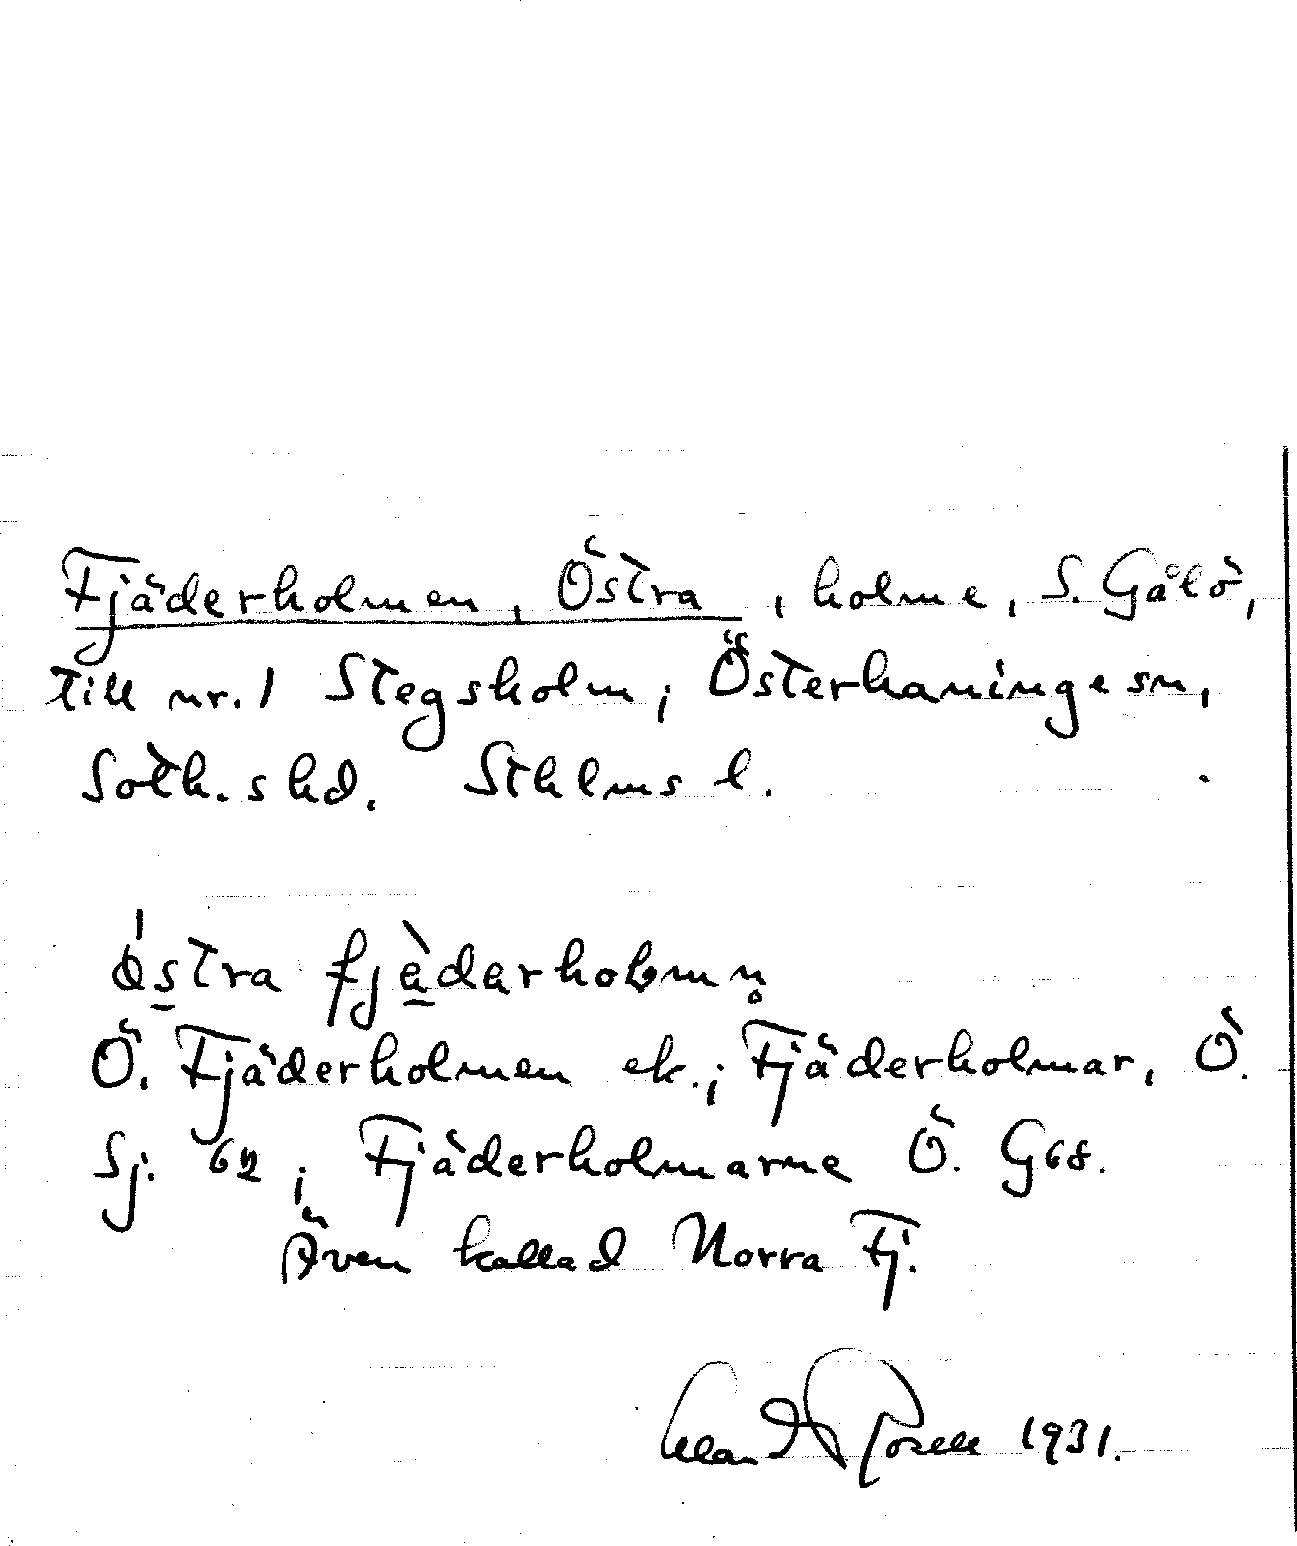 Fjäderholmen, Östra, holme, S. Gålö,
till nr. 1 Stegsholm; Österhaninge sn,
Soth.s hd. Sthlms l.
Östra fjäderholmn̥
Ö. Fjäderholmen ek.; Fjäderholmar, Ö.
Sj. 62; Fjäderholmarne Ö. G68.
Även kallad Norra Fj.
1931.